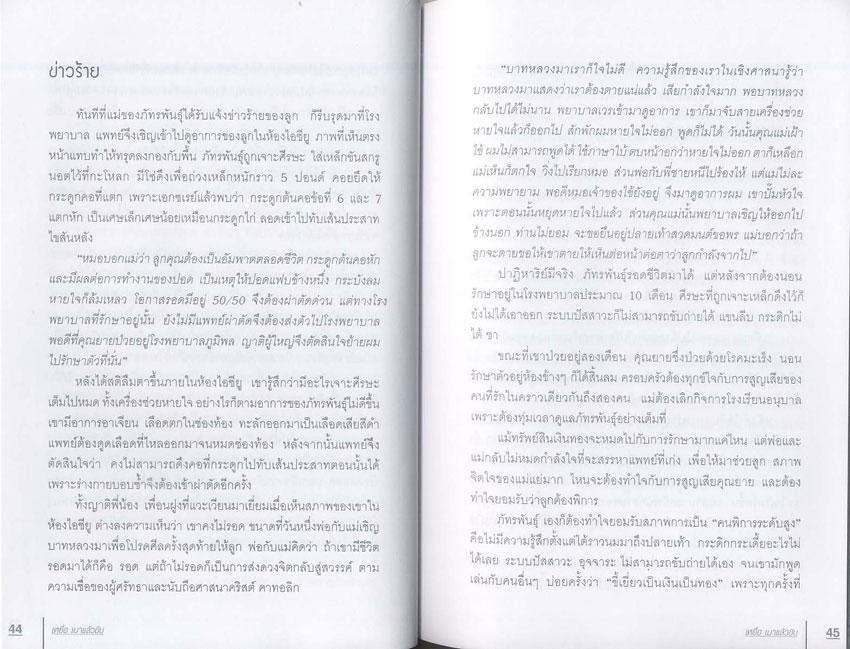 ข่าวร้าย
ทันทีที่แม่ของภัทรพันธุ์ได้รับแจ้งข่าวร้ายของลูก ก็รีบรุดมาที่โรง
พยาบาล แพทย์จึงเชิญเข้าไปดูอาการของลูกในห้องไอซียู ภาพที่เห็นตรง
หน้าแทบทำให้ทรุดลงกองกับพื้น ภัทรพันธุ์ถูกเจาะศีรษะ ใส่เหล็กขันสกรู
นอตไว้ที่กะโหลก มีโซ่ดึงเพื่อถ่วงเหล็กหนักราว 5 ปอนด์ คอยยึดให้
กระดูกคอที่แตก เพราะเอกซเรย์แล้วพบว่า กระดูกต้นคอข้อที่ 6 และ 7
แตกหัก เป็นเศษเล็กเศษน้อยเหมือนกระดูกไก่ ลอดเข้าไปทับเส้นประสาท
ไขสันหลัง
“หมอบอกแม่ว่า ลูกคุณต้องเป็นอัมพาตตลอดชีวิต กระดูกต้นคอหัก
และมีผลต่อการทำงานของปอด เป็นเหตุให้ปอดแฟบข้างหนึ่ง กระบังลม
หายใจก็ล้มเหลว โอกาสรอดมีอยู่ 50/50 จึงต้องผ่าตัดด่วน แต่ทางโรง
พยาบาลที่รักษาอยู่นั้น ยังไม่มีแพทย์ผ่าตัดจึงต้องส่งตัวไปโรงพยาบาล
พอดีที่คุณยายป่วยอยู่โรงพยาบาลภูมิพล ญาติผู้ใหญ่จึงตัดสินใจย้ายผม
ไปรักษาตัวที่นั่น”
หลังได้สติลืมตาขึ้นภายในห้องไอซียู เขารู้สึกว่ามีอะไรเจาะศีรษะ
เต็มไปหมด ทั้งเครื่องช่วยหายใจ อย่างไรก็ตามอาการของภัทรพันธุ์ไม่ดีขึ้น
เขามีอาการอาเจียน เลือดตกในช่องท้อง ทะลักออกมาเป็นเลือดเสียสีดำ
แพทย์ต้องดูดเลือดที่ไหลออกมาจนหมดช่องท้อง หลังจากนั้นแพทย์จึง
ตัดสินใจว่า คงไม่สามารถดึงคอที่กระดูกไปทับเส้นประสาทตอนนั้นได้
เพราะร่างกายบอบช้ำจึงต้องเข้าผ่าตัดอีกครั้ง
ทั้งญาติพี่น้อง เพื่อนฝูงที่แวะเวียนมาเยี่ยมเมื่อเห็นสภาพของเขาใน
ห้องไอซียู ต่างลงความเห็นว่า เขาคงไม่รอด ขนาดที่วันหนึ่งพ่อกับแม่เชิญ
บาทหลวงมาเพื่อโปรดศีลครั้งสุดท้ายให้ลูก พ่อกับแม่คิดว่า ถ้าเขามีชีวิต
รอดมาได้ก็คือ รอด แต่ถ้าไม่รอดก็เป็นการส่งดวงจิตกลับสู่สวรรค์ ตาม
ความเชื่อของผู้ศรัทธาและนับถือศาสนาคริสต์ คาทอลิก
44 เหยื่อ เมาแล้วขับ
“บาทหลวงมาเราก็ใจไม่ดี ความรู้สึกของเราในเชิงศาสนารู้ว่า
บาทหลวงมาแสดงว่าเราต้องตายแน่แล้ว เสียกำลังใจมาก พอบาทหลวง
กลับไปได้ไม่นาน พยาบาลเวรเข้ามาดูอาการ เขาก็มาจับสายเครื่องช่วย
หายใจแล้วก็ออกไป สักพักผมหายใจไม่ออก พูดก็ไม่ได้ วันนั้นคุณแม่เฝ้า
ไข้ ผมไม่สามารถพูดได้ ใช้ภาษาใบ้ ตบหน้าอกว่าหายใจไม่ออก ตาก็เหลือก
แม่เห็นก็ตกใจ วิ่งไปเรียกหมอ ส่วนพ่อกับพี่ชายหนีไปร้องไห้ แต่แม่ไม่ละ
ความพยายาม พอดีหมอเจ้าของไข้ยังอยู่ จึงมาดูอาการผม เขาปั๊มหัวใจ
เพราะตอนนั้นหยุดหายใจไปแล้ว ส่วนคุณแม่นั้นพยาบาลเชิญให้ออกไป
ข้างนอก ท่านไม่ยอม จะขอยืนอยู่ปลายเท้าสวดมนต์ขอพร แม่บอกว่าถ้า
ลูกจะตายขอให้เขาตายให้เห็นต่อหน้าต่อตาว่าลูกกำลังจากไป”
ปาฏิหาริย์มีจริง ภัทรพันธุ์รอดชีวิตมาได้ แต่หลังจากต้องนอน
รักษาอยู่ในโรงพยาบาลประมาณ 10 เดือน ศีรษะที่ถูกเจาะเหล็กดึงไว้ก็
ยังไม่ได้เอาออก ระบบปัสสาวะก็ไม่สามารถขับถ่ายได้ แขนลีบ กระดิกไม่
ได้ ชา
ขณะที่เขาป่วยอยู่สองเดือน คุณยายซึ่งป่วยด้วยโรคมะเร็ง นอน
รักษาตัวอยู่ห้องข้างๆ ก็ได้สิ้นลม ครอบครัวต้องทุกข์ใจกับการสูญเสียของ
คนที่รักในคราวเดียวกันถึงสองคน แม่ต้องเลิกกิจการโรงเรียนอนุบาล
เพราะต้องทุ่มเวลาดูแลภัทรพันธุ์อย่างเต็มที่
แม้ทรัพย์สินเงินทองจะหมดไปกับการรักษามากแค่ไหน แต่พ่อและ
แม่กลับไม่หมดกำลังใจที่จะสรรหาแพทย์ที่เก่ง เพื่อให้มาช่วยลูก สภาพ
จิตใจของแม่แย่มาก ไหนจะต้องทำใจกับการสูญเสียคุณยาย และต้อง
ทำใจยอมรับว่าลูกต้องพิการ
ภัทรพันธุ์ เองก็ต้องทำใจยอมรับสภาพการเป็น “คนพิการระดับสูง”
คือไม่มีความรู้สึกตั้งแต่ใต้ราวนมมาถึงปลายเท้า กระดิกกระเดี้ยอะไรไม่
ได้เลย ระบบปัสสาวะ อุจจาระ ไม่สามารถขับถ่ายได้เอง จนเขามักพูด
เล่นกับคนอื่นๆ บ่อยครั้งว่า “ขี้เยี่ยวเป็นเงินเป็นทอง” เพราะทุกครั้งที่
เหยื่อ เมาแล้วขับ 45